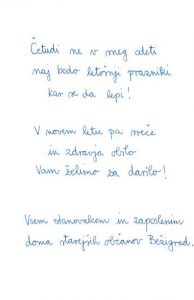 Četudi ne v sneg odeti
naj bodo letošnji prazniki
kar se da lepi!
V novem letu pa sreče
in zdravja obilo
Vam želimo za darilo!
Vsem stanovalcem in zaposlenim
doma starejših občanov Bežigrad.